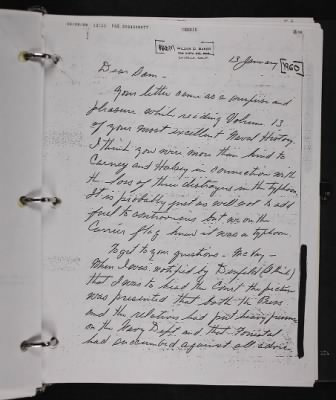 WILDER D. BAKER
13 January [1960]
Dear Sam -
Your letter came as a surprise and
pleasure while reading Volume 13
of your most excellent Naval History.
I think you were more than kind to
Carney and Halsey in connection with
the loss of three destroyers in the typhoon.
It is probably just as well not to add
fuel to controversies but we on the
Carrier flag knew it was a typhoon.
To get to your questions. McVay -
When I was notified by Denfeld (Chief)
that I was to head the Court the picture
was presented that both the Press
and the relatives had put heavy pressure
on the Navy Dept. and that Forrestal
had succumbed against all advice